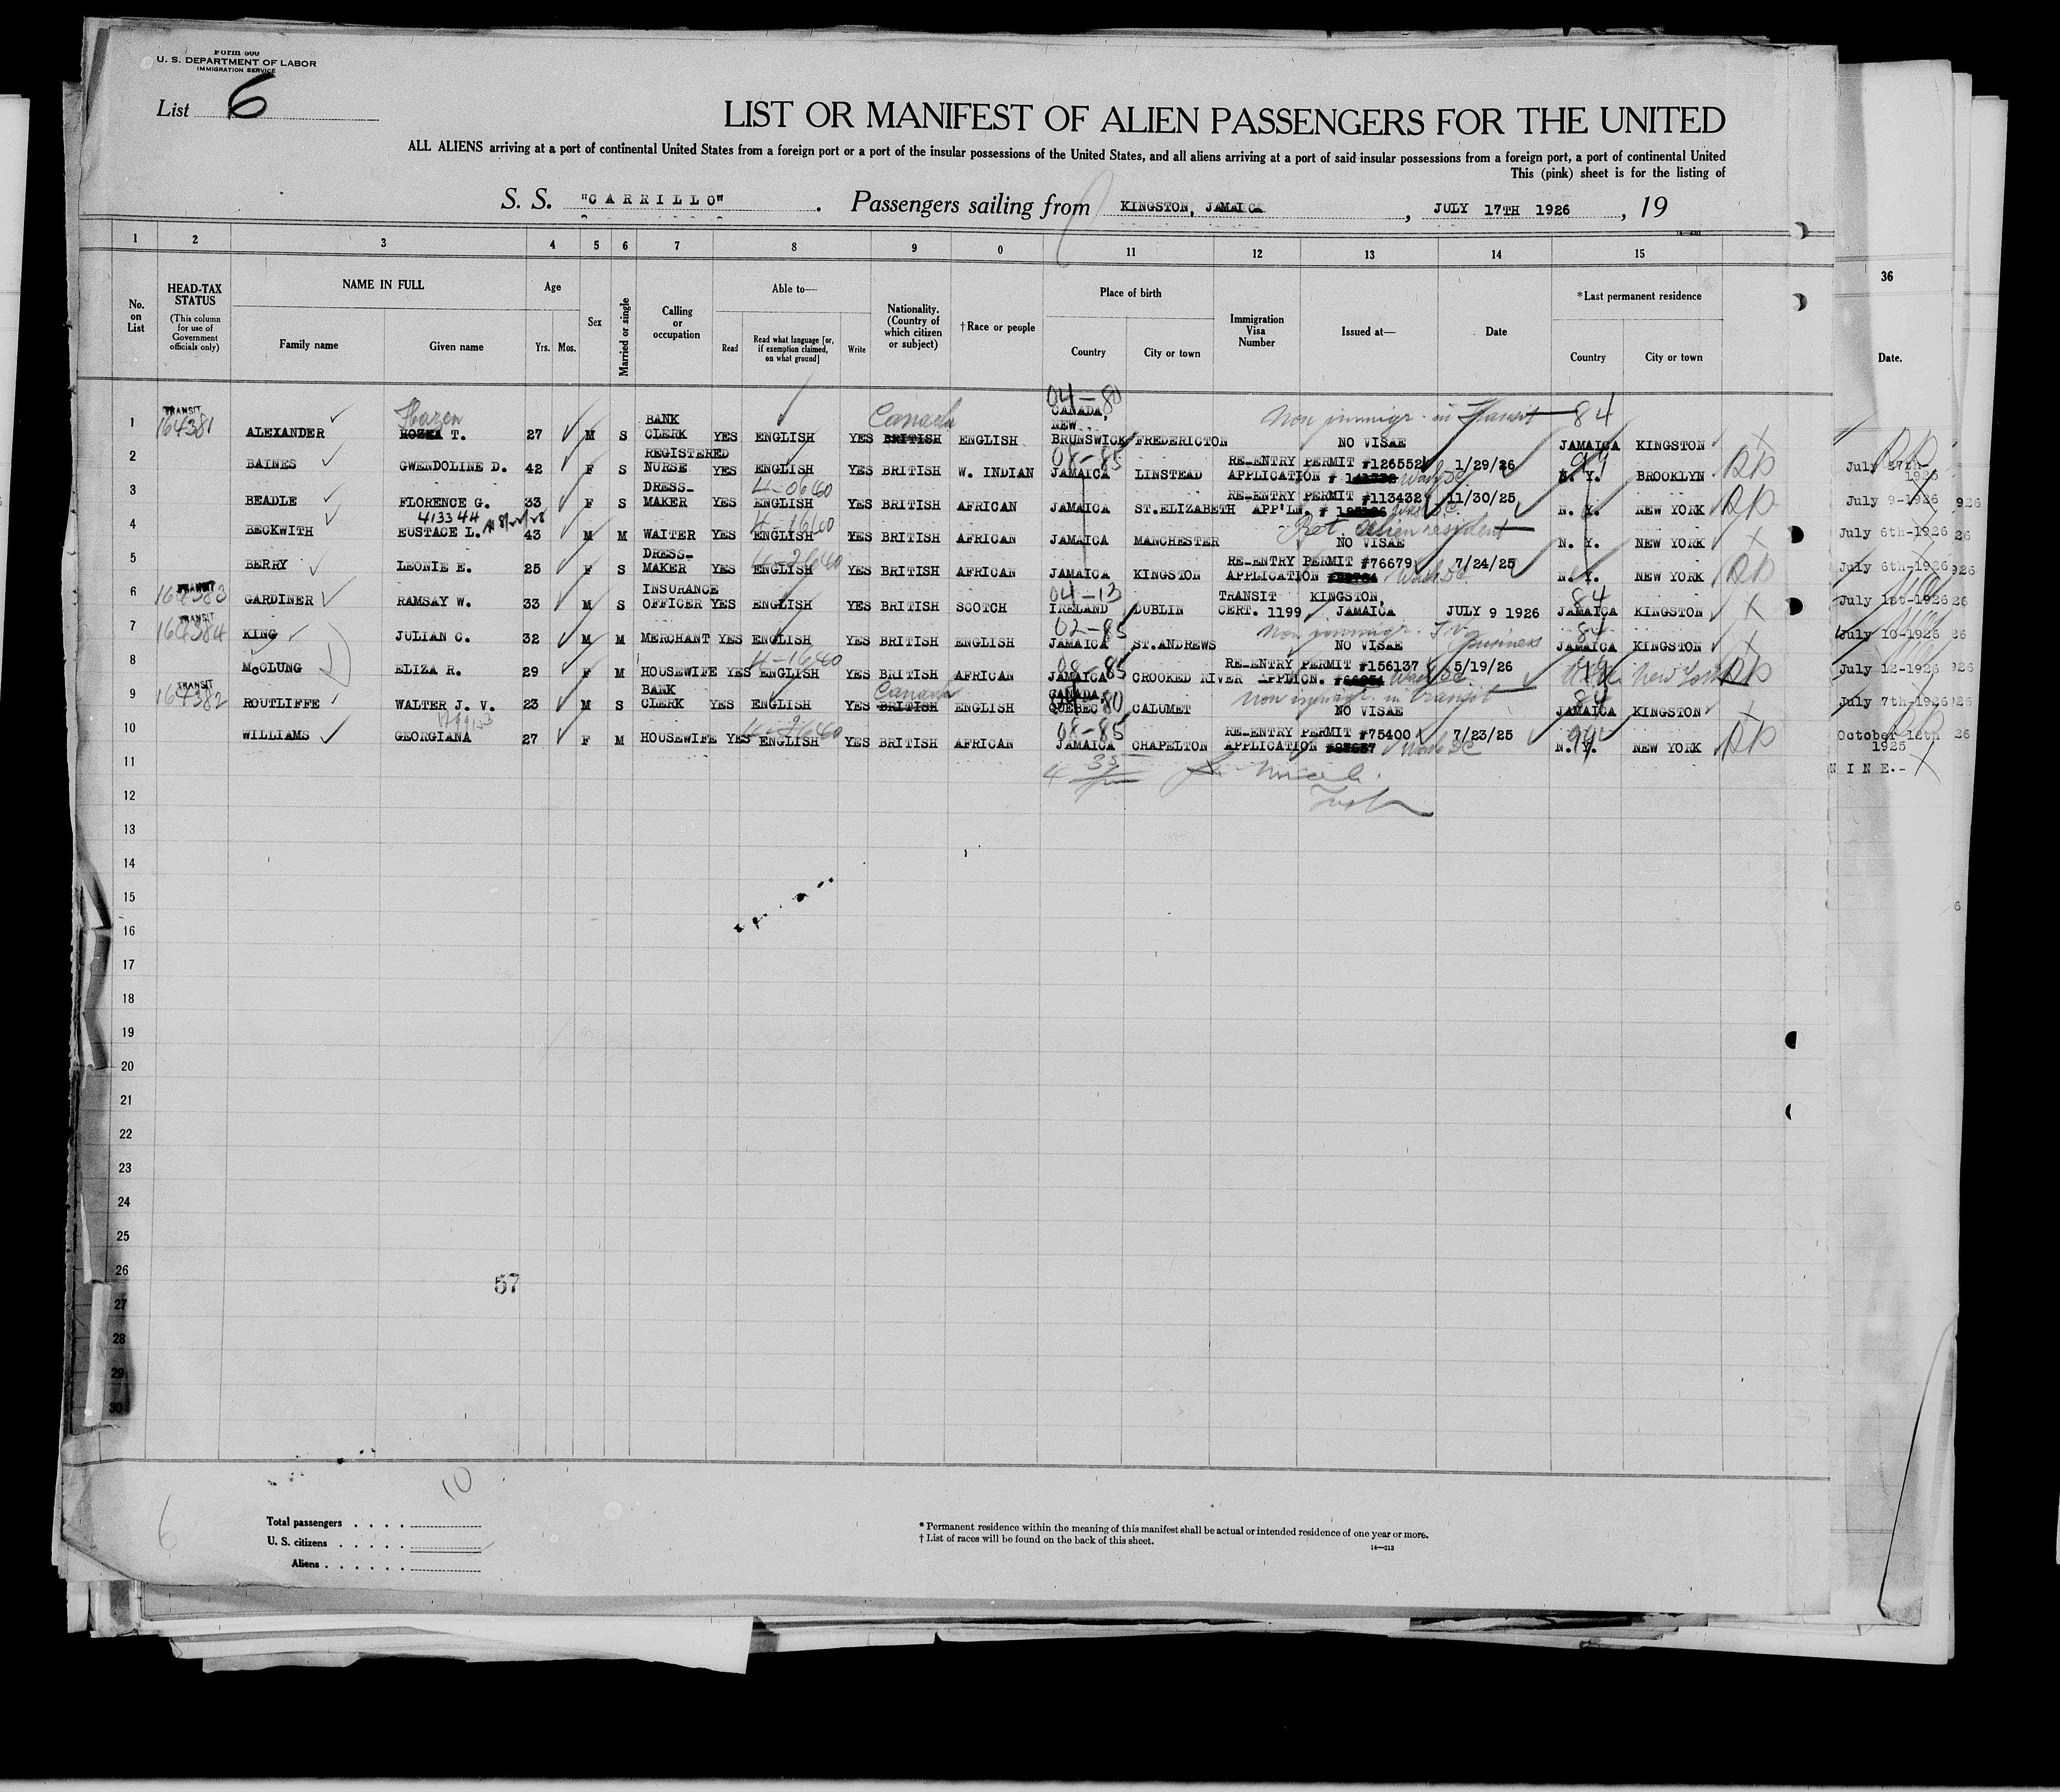 Form 500
U. S. DEPARTMENT OF LABOR
IMMIGRATION SERVICE
List 6
LIST OR MANIFEST OF ALIEN PASSENGERS FOR THE UNITED
ALL ALIENS arriving at a port of continental United States from a foreign port or a port of the insular possessions of the United States, and all aliens arriving at a port of said insular possessions from a foreign port, a port of continental United
This (pink) sheet is for the listing of
S. S. "CARRILLO" . Passengers sailing from KINGSTON, JAMAICA , JULY 17TH 1926 , 19
1 2 3 4 5 6 7 8 9 0 11 12 13 14 15 36
No. on List
HEAD-TAX STATUS
(This column for use of Government officials only)
NAME IN FULL
Family name Given name
Age
Yrs. Mos.
Sex
Married or single
Calling or occupation
Able to—
Read
Read what language [or, if exemption claimed, on what ground]
Write
Nationality. (Country of which citizen or subject)
†Race or people
Place of birth
Country City or town
Immigration Visa Number
Issued at—
Date
*Last permanent residence
Country City or town
Date.
1 TRANSIT 164381 ALEXANDER Hazen T. 27 M S BANK CLERK YES ENGLISH YES Canada BRITISH ENGLISH 04-80 CANADA, NEW BRUNSWICK FREDERICTON Non immigr. in Transit NO VISAE 84 JAMAICA KINGSTON
2 BAINES GWENDOLINE D. 42 F S REGISTERED NURSE YES ENGLISH YES BRITISH W. INDIAN 08-85 JAMAICA LINSTEAD RE-ENTRY PERMIT #126552 APPLICATION # Wash DC 1/29/26 99 N. Y. BROOKLYN RP July 27th- 1926
3 BEADLE FLORENCE G. 33 F S DRESS-MAKER YES 4-0640 ENGLISH YES BRITISH AFRICAN JAMAICA ST.ELIZABETH RE-ENTRY PERMIT #113432 APP'LN. # Was DC. 11/30/25 N. Y. NEW YORK RP July 9-1926
4 BECKWITH 413344 EUSTACE L. 43 M M WAITER YES 4-1640 ENGLISH YES BRITISH AFRICAN JAMAICA MANCHESTER Ret. alien resident NO VISAE N. Y. NEW YORK July 6th-1926
5 BERRY LEONIE E. 25 F S DRESS-MAKER YES 4-2640 ENGLISH YES BRITISH AFRICAN JAMAICA KINGSTON RE-ENTRY PERMIT #76679 APPLICATION Wash DC 7/24/25 N. Y. NEW YORK RP July 6th-1926
6 TRANSIT 164383 GARDINER RAMSAY W. 33 M S INSURANCE OFFICER YES ENGLISH YES BRITISH SCOTCH 04-13 IRELAND DUBLIN TRANSIT CERT. 1199 KINGSTON, JAMAICA JULY 9 1926 84 JAMAICA KINGSTON July 1st-1926
7 TRANSIT 164384 KING JULIAN C. 32 M M MERCHANT YES ENGLISH YES BRITISH ENGLISH 02-85 JAMAICA ST.ANDREWS Non immigr. Business NO VISAE 84 JAMAICA KINGSTON July 10-1926
8 McCLUNG ELIZA R. 29 F M HOUSEWIFE YES 4-1640 ENGLISH YES BRITISH AFRICAN 08-85 JAMAICA CROOKED RIVER RE-ENTRY PERMIT #156137 APPLICN. # Wash DC. 5/19/26 New York RP July 12-1926
9 TRANSIT 164382 ROUTLIFFE WALTER J. V. 23 M S BANK CLERK YES ENGLISH YES Canada BRITISH ENGLISH CANADA, QUEBEC 80 CALUMET Non immigr. in transit NO VISAE 84 JAMAICA KINGSTON July 7th-1926
10 WILLIAMS GEORGIANA 27 F M HOUSEWIFE YES 4-2640 ENGLISH YES BRITISH AFRICAN 08-85 JAMAICA CHAPELTON RE-ENTRY PERMIT #75400 APPLICATION Wash DC 7/23/25 99 N. Y. NEW YORK RP October 12th 1925
11 NINE.-
12
13
14
15
16
17
18
19
20
21
22
23
24
25
26
57
27
28
29
30
10
6
Total passengers
U. S. citizens
Aliens
* Permanent residence within the meaning of this manifest shall be actual or intended residence of one year or more.
† List of races will be found on the back of this sheet.
14—213